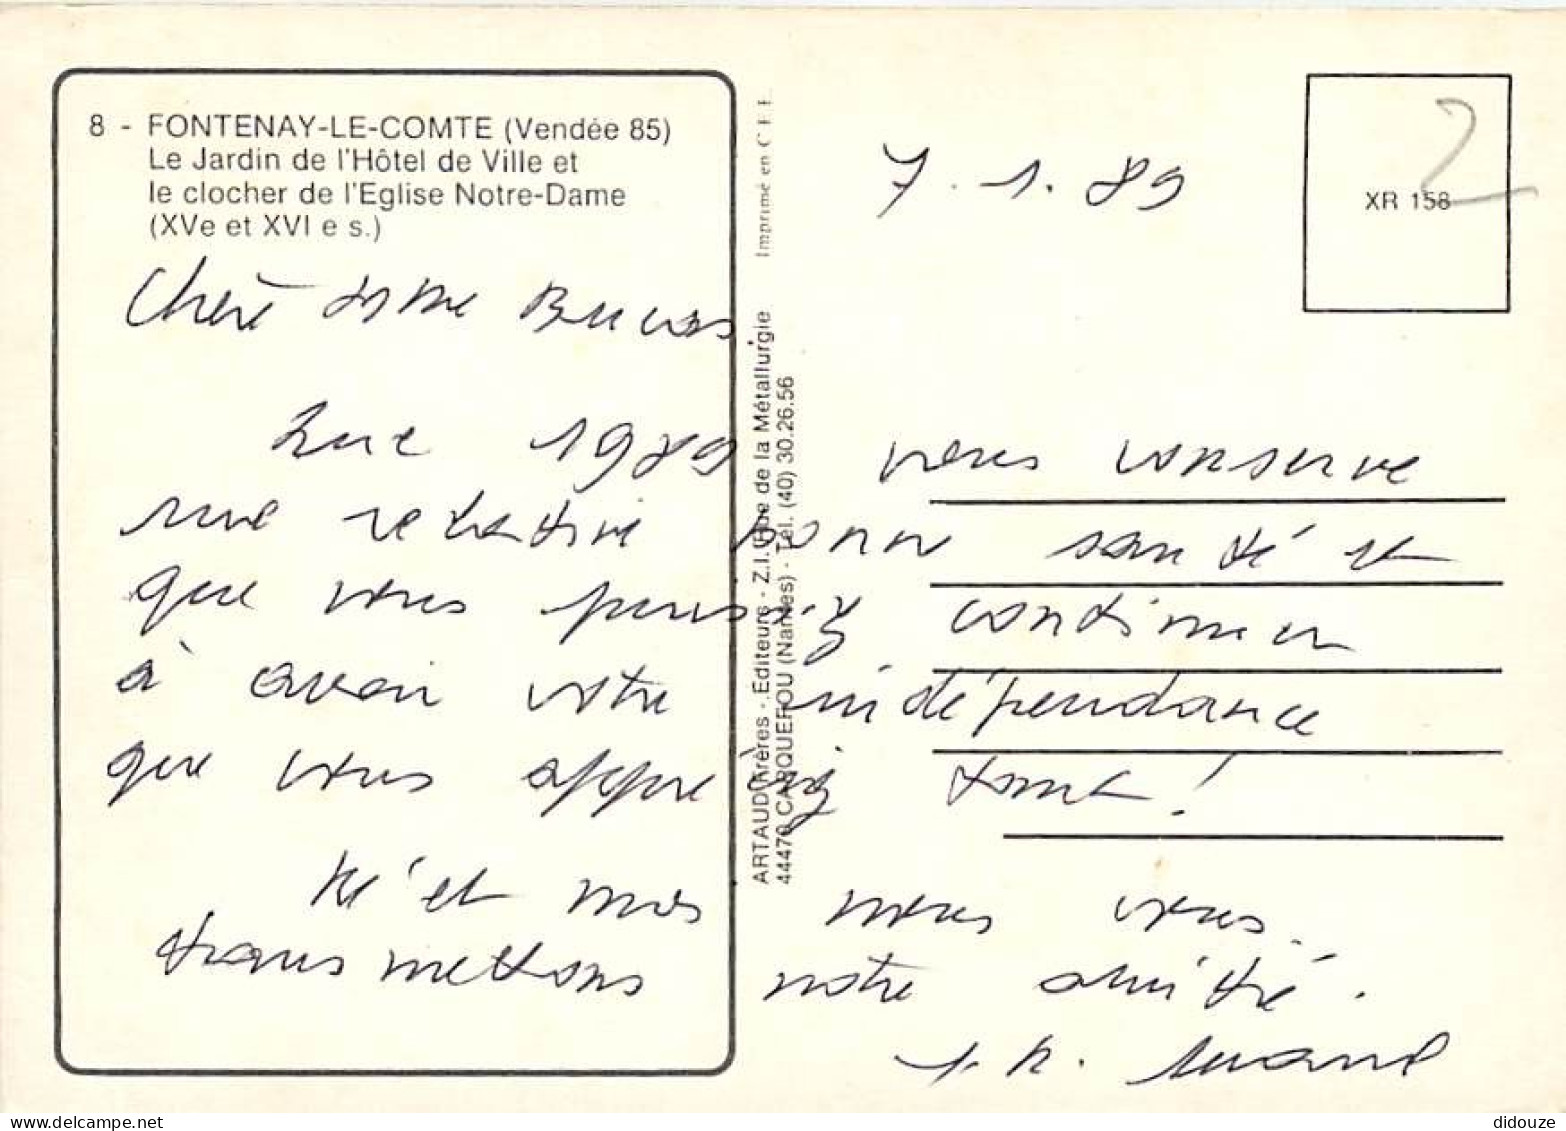 8 - FONTENAY-LE-COMTE (Vendée 85)
Le Jardin de l'Hôtel de Ville et
le clocher de l'Eglise Notre-Dame
(XVe et XVI e s.)
Imprimé en C.E.E.
7.1.89
2
XR 158
Chère
que 1989 vous conserve
une relative bonne santé et
que vous puissiez continuer
à avoir votre indépendance
que vous appréciez tant !
et moi nous vous
transmettons notre amitié.
ARTAUD Frères - Editeurs - Z.I. Rue de la Métallurgie
44470 CARQUEFOU (Nantes) - Tél. (40) 30.26.56
didouze